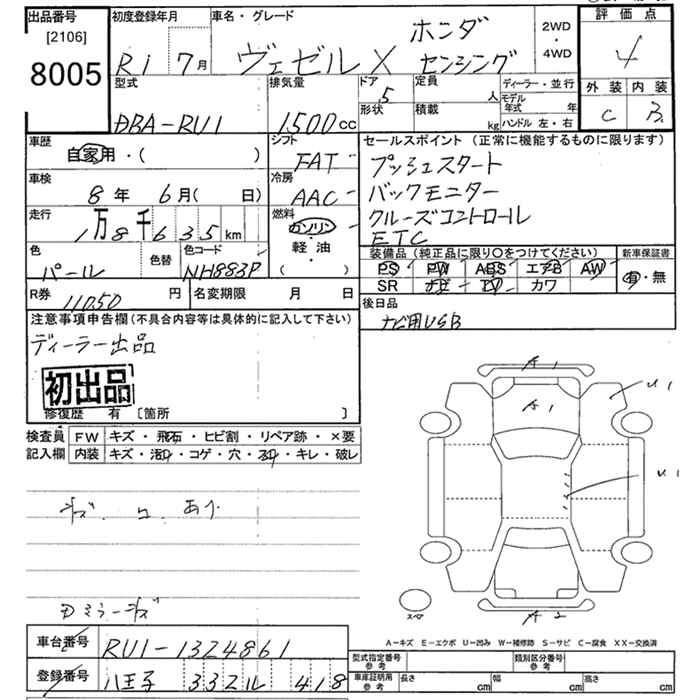 出品番号
[2106]
8005
初度登録年月
R1 7月
車名・グレード
ホンダ
ヴェゼル X センシング
2WD
・
4WD
評価点
4
外装 内装
C B
型式
DBA-RU1
排気量
1500cc
ドア
5
形状
定員
人
積載
kg
ディーラー・並行
モデル年式 年
ハンドル 左・右
車歴
自家用・( )
シフト
FAT
車検
8年 6月( 日)
冷房
AAC
走行
1万8千635km
燃料
ガソリン
軽・油
( ・ )
色
パール
色替
色コード
NH883P
R券
11050円
名変期限 月 日
セールスポイント(正常に機能するものに限ります)
プッシュスタート
バックモニター
クルーズコントロール
ETC
装備品(純正品に限り○をつけてください)
PS PW ABS エアB AW
SR ナビ TV カワ
新車保証書
有・無
後日品
ナビ用USB
注意事項申告欄(不具合内容等は具体的に記入して下さい)
ディーラー出品
初出品
修復歴 有 [箇所 ]
検査員
記入欄
FW キズ・飛石・ヒビ割・リペア跡・×要
内装 キズ・汚れ・コゲ・穴・スレ・キレ・破レ
あり
Dミラーキズ
A1
A1
U1
U1
A2
スペア
A-キズ E-エクボ U-凹み W-補修跡 S-サビ C-腐食 XX-交換済
車台番号
RU1-1324861
登録番号
八王子 332ル 418
型式指定番号
参考
類別区分番号
参考
車庫証明用
参考
長さ cm 幅 cm 高さ cm